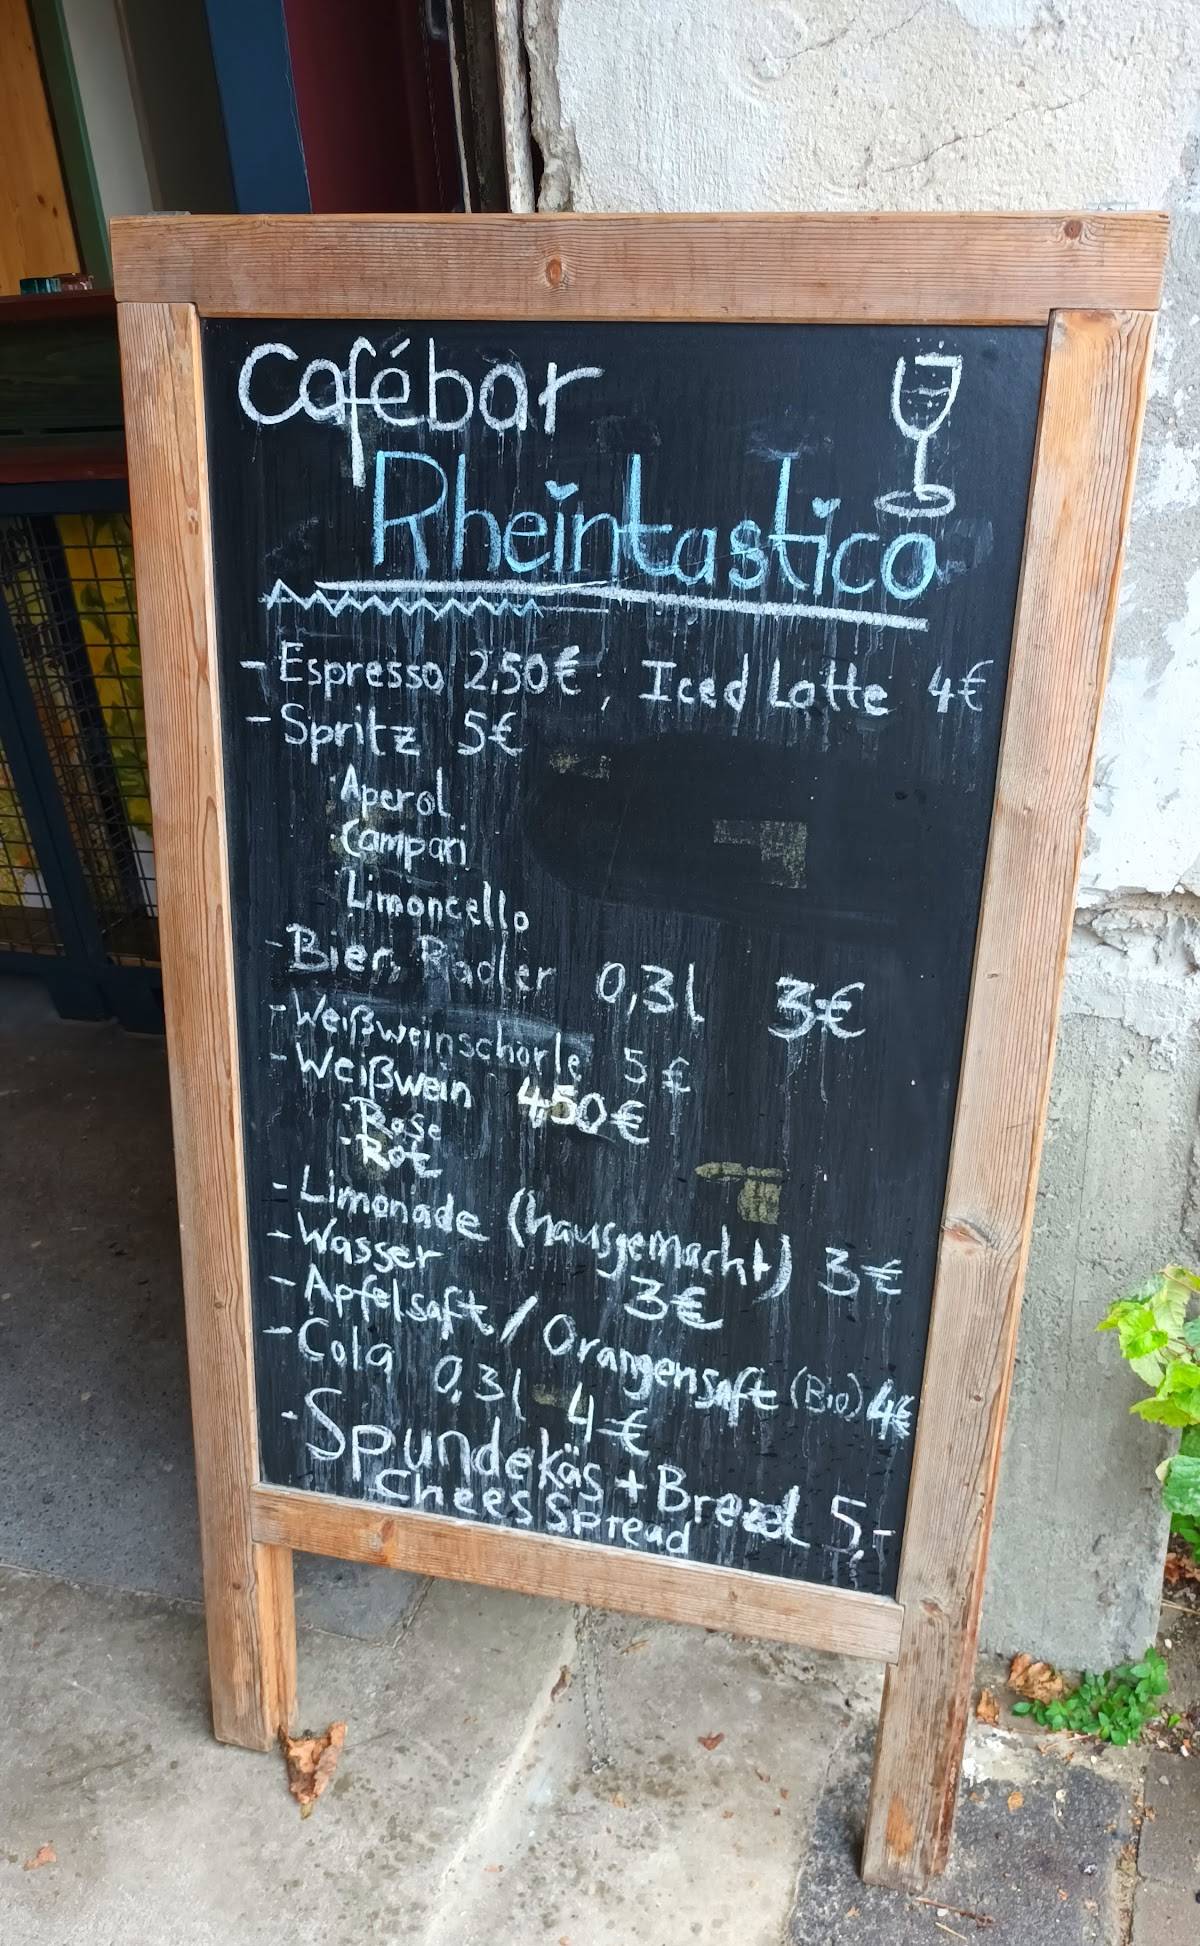 Cafébar
Rheintastico
- Espresso 2,50€, Iced Latte 4€
- Spritz 5€
· Aperol
· Campari
· Limoncello
- Bier, Radler 0,3l 3€
- Weißweinschorle 5€
- Weißwein 4,50€
· Rose
· Rot
- Limonade (hausgemacht) 3€
- Wasser 3€
- Apfelsaft / Orangensaft (Bio) 4€
- Cola 0,3l 4€
- Spundekäs + Brezel 5,-
Chees Spread